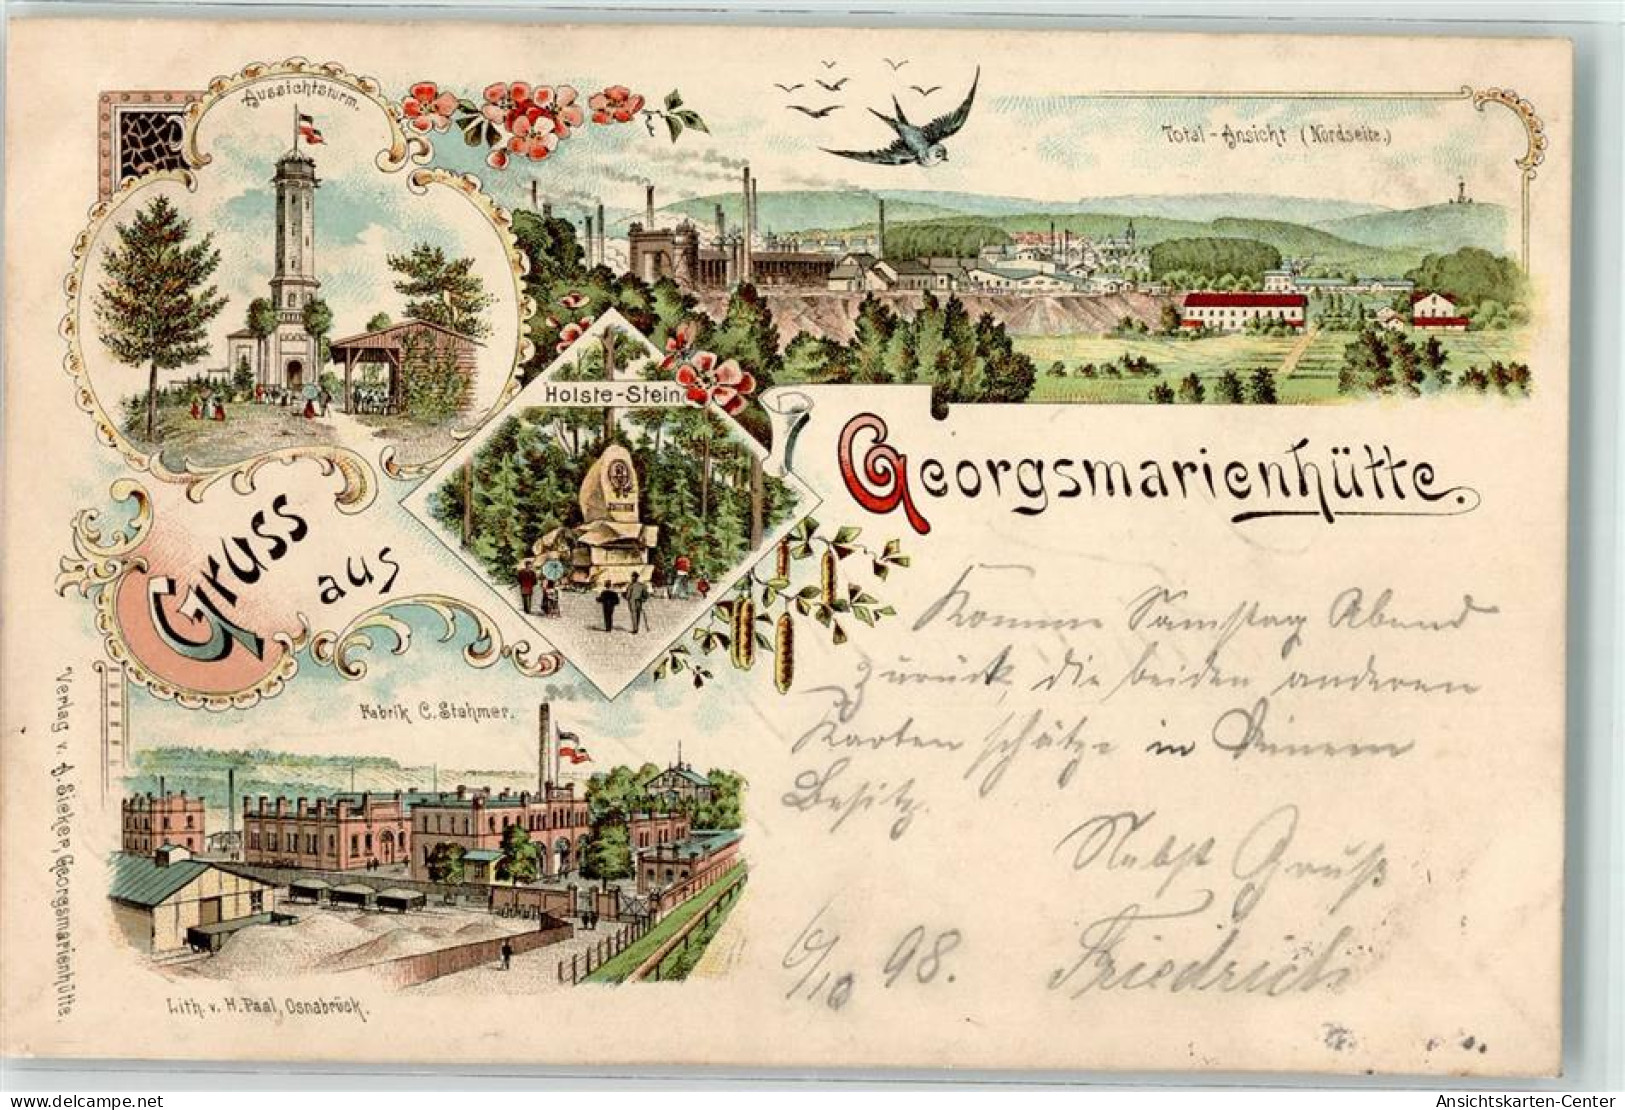 Aussichtsturm.
Total-Ansicht (Nordseite.)
Holste-Stein
Georgsmarienhütte.
Gruss
aus
Komme Samstag Abend
zurück, die beiden anderen
Karten schätze in Deinem
Besitz.
Nebst Gruß
Friedrich
6/10 98.
Fabrik C. Stahmer.
Verlag v. A. Sieker, Georgsmarienhütte.
Lith. v. H. Paal, Osnabrück.
delcampe.net
Ansichtskarten-Center